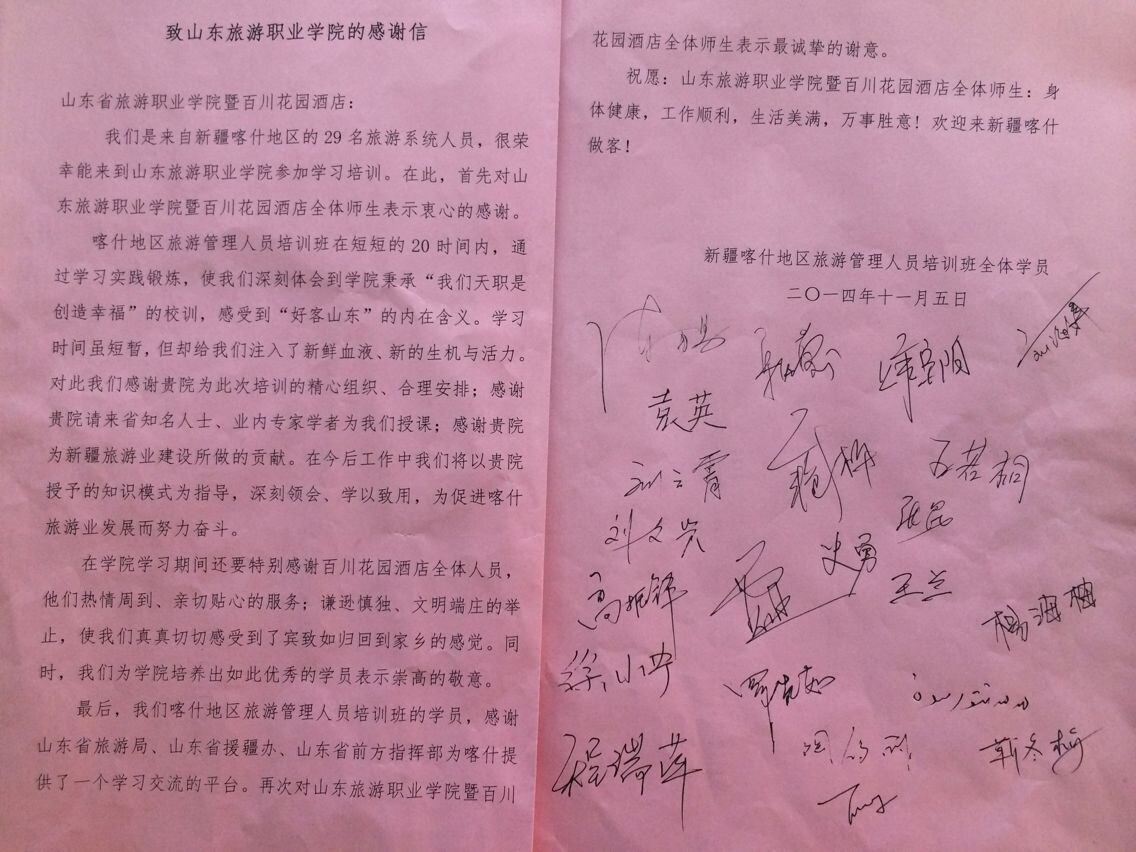 致山东旅游职业学院的感谢信
山东省旅游职业学院暨百川花园酒店：
我们是来自新疆喀什地区的 29 名旅游系统人员，很荣
幸能来到山东旅游职业学院参加学习培训。在此，首先对山
东旅游职业学院暨百川花园酒店全体师生表示衷心的感谢。
喀什地区旅游管理人员培训班在短短的 20 时间内，通
过学习实践锻炼，使我们深刻体会到学院秉承“我们天职是
创造幸福”的校训，感受到“好客山东”的内在含义。学习
时间虽短暂，但却给我们注入了新鲜血液、新的生机与活力。
对此我们感谢贵院为此次培训的精心组织、合理安排；感谢
贵院请来省知名人士、业内专家学者为我们授课；感谢贵院
为新疆旅游业建设所做的贡献。在今后工作中我们将以贵院
授予的知识模式为指导，深刻领会、学以致用，为促进喀什
旅游业发展而努力奋斗。
在学院学习期间还要特别感谢百川花园酒店全体人员，
他们热情周到、亲切贴心的服务；谦逊慎独、文明端庄的举
止，使我们真真切切感受到了宾致如归回到家乡的感觉。同
时，我们为学院培养出如此优秀的学员表示崇高的敬意。
最后，我们喀什地区旅游管理人员培训班的学员，感谢
山东省旅游局、山东省援疆办、山东省前方指挥部为喀什提
供了一个学习交流的平台。再次对山东旅游职业学院暨百川
花园酒店全体师生表示最诚挚的谢意。
祝愿：山东旅游职业学院暨百川花园酒店全体师生：身
体健康，工作顺利，生活美满，万事胜意！欢迎来新疆喀什
做客！
新疆喀什地区旅游管理人员培训班全体学员
二〇一四年十一月五日
袁英
刘云霄
史勇
王兰
杨海梅
程瑞萍
靳冬梅